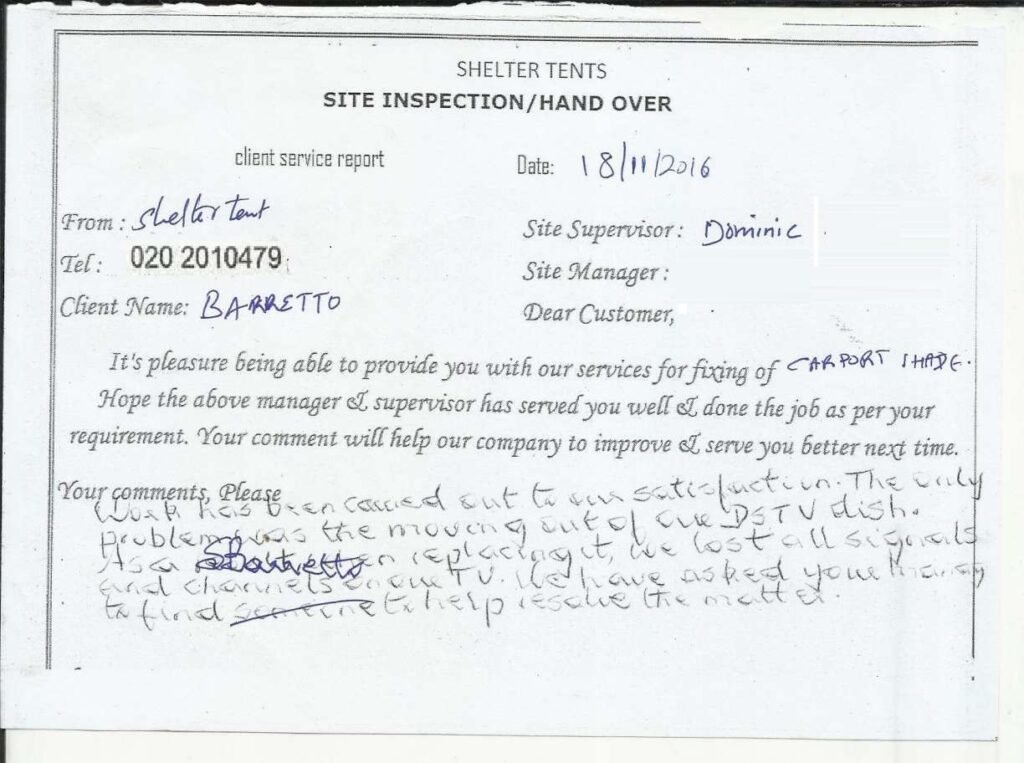 SHELTER TENTS
SITE INSPECTION/HAND OVER
client service report
Date: 18/11/2016
From: Shelter tent
Site Supervisor: Dominic
Tel: 020 2010479
Site Manager:
Client Name: BARRETTO
Dear Customer,
It's pleasure being able to provide you with our services for fixing of CARPORT SHADE.
Hope the above manager & supervisor has served you well & done the job as per your
requirement. Your comment will help our company to improve & serve you better next time.
Your comments, Please
Work has been carried out to our satisfaction. The only
problem was the moving out of our DSTV dish.
As a on replacing it, we lost all signals
and channels on our TV. We have asked your
to find someone to help resolve the matter.